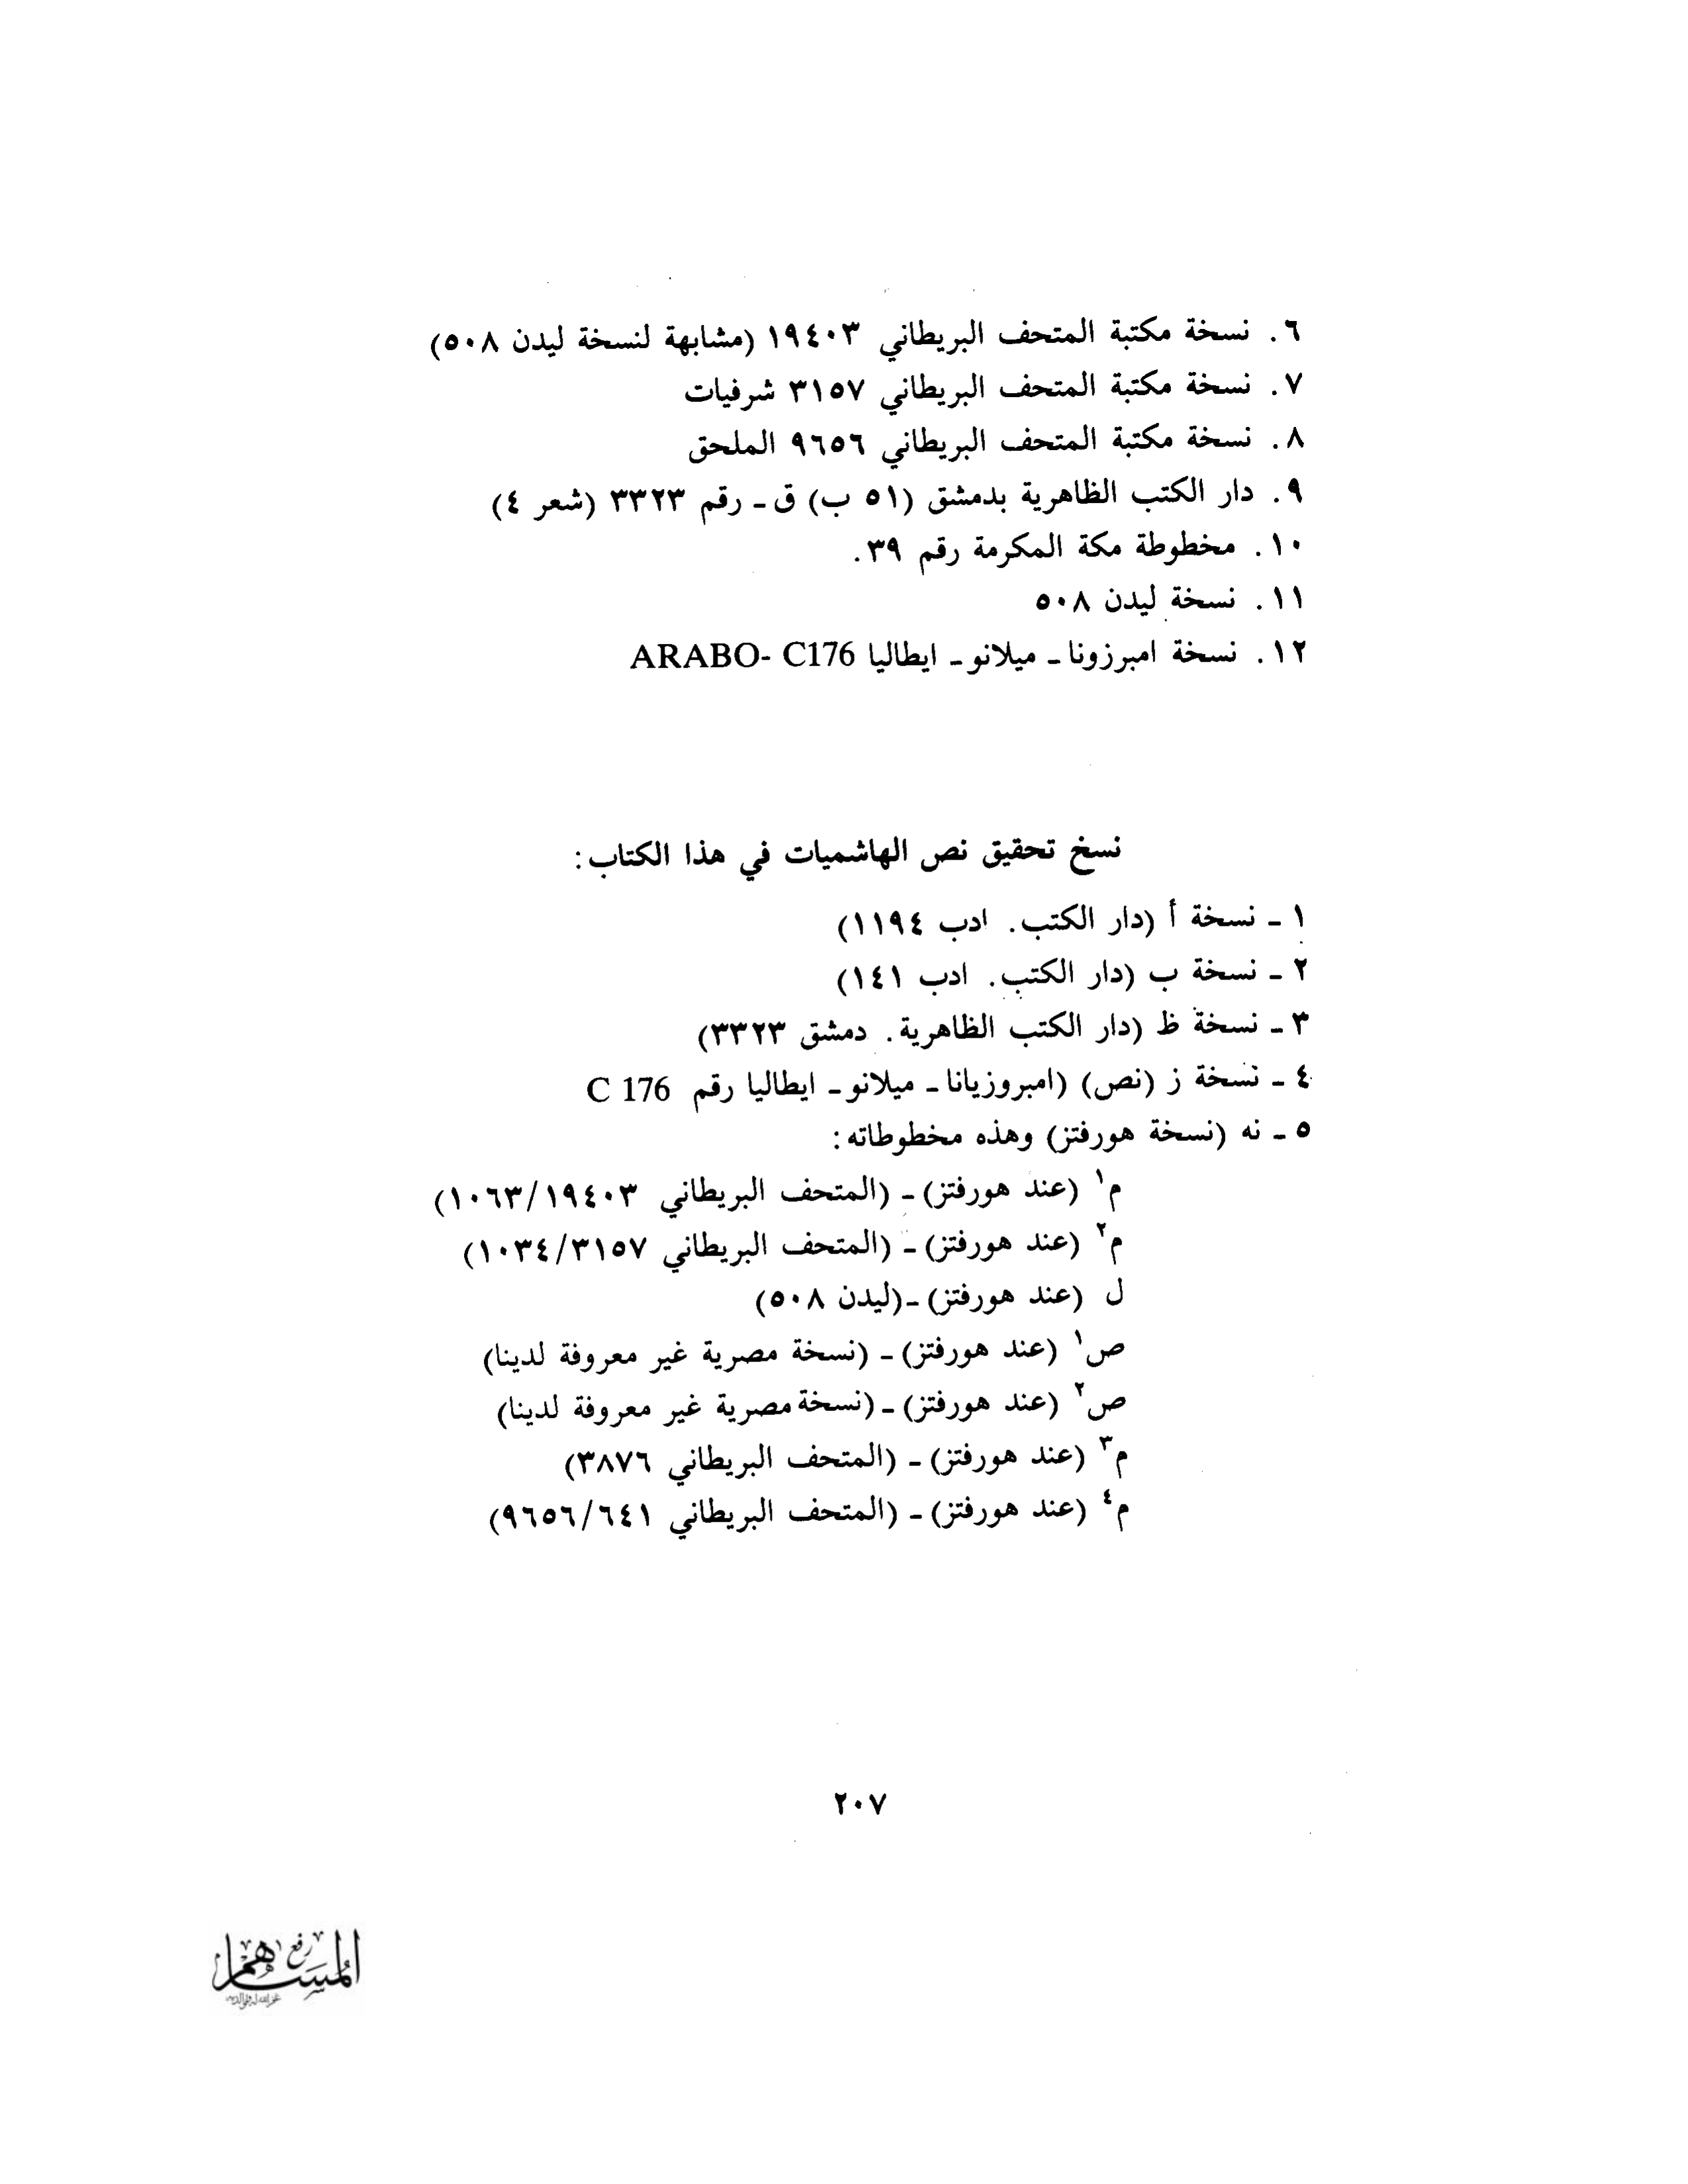 ٦. نسخة مكتبة المتحف البريطاني ١٩٤٠٣ (مشابهة لنسخة ليدن ٥٠٨)
٧. نسخة مكتبة المتحف البريطاني ٣١٥٧ شرفيات
٨. نسخة مكتبة المتحف البريطاني ٩٦٥٦ الملحق
٩. دار الكتب الظاهرية بدمشق (٥١ ب) ق ـ رقم ٣٣٢٣ (شعر ٤)
١٠. مخطوطة مكة المكرمة رقم ٣٩.
١١. نسخة ليدن ٥٠٨
١٢. نسخة امبرزونا ـ ميلانو ـ ايطاليا ARABO- C176
نسخ تحقيق نص الهاشميات في هذا الكتاب:
١ ـ نسخة أ (دار الكتب. ادب ١١٩٤)
٢ ـ نسخة ب (دار الكتب. ادب ١٤١)
٣ ـ نسخة ظ (دار الكتب الظاهرية. دمشق ٣٣٢٣)
٤ ـ نسخة ز (نص) (امبروزيانا ـ ميلانو ـ ايطاليا رقم C 176
٥ ـ نه (نسخة هورفتز) وهذه مخطوطاته:
م١ (عند هورفتز) ـ (المتحف البريطاني ١٠٦٣/١٩٤٠٣)
م٢ (عند هورفتز) ـ (المتحف البريطاني ١٠٣٤/٣١٥٧)
ل (عند هورفتز) ـ(ليدن ٥٠٨)
ص١ (عند هورفتز) ـ (نسخة مصرية غير معروفة لدينا)
ص٢ (عند هورفتز) ـ (نسخة مصرية غير معروفة لدينا)
م٣ (عند هورفتز) ـ (المتحف البريطاني ٣٨٧٦)
م٤ (عند هورفتز) ـ (المتحف البريطاني ٩٦٥٦/٦٤١)
٢٠٧
رفع
المساهم